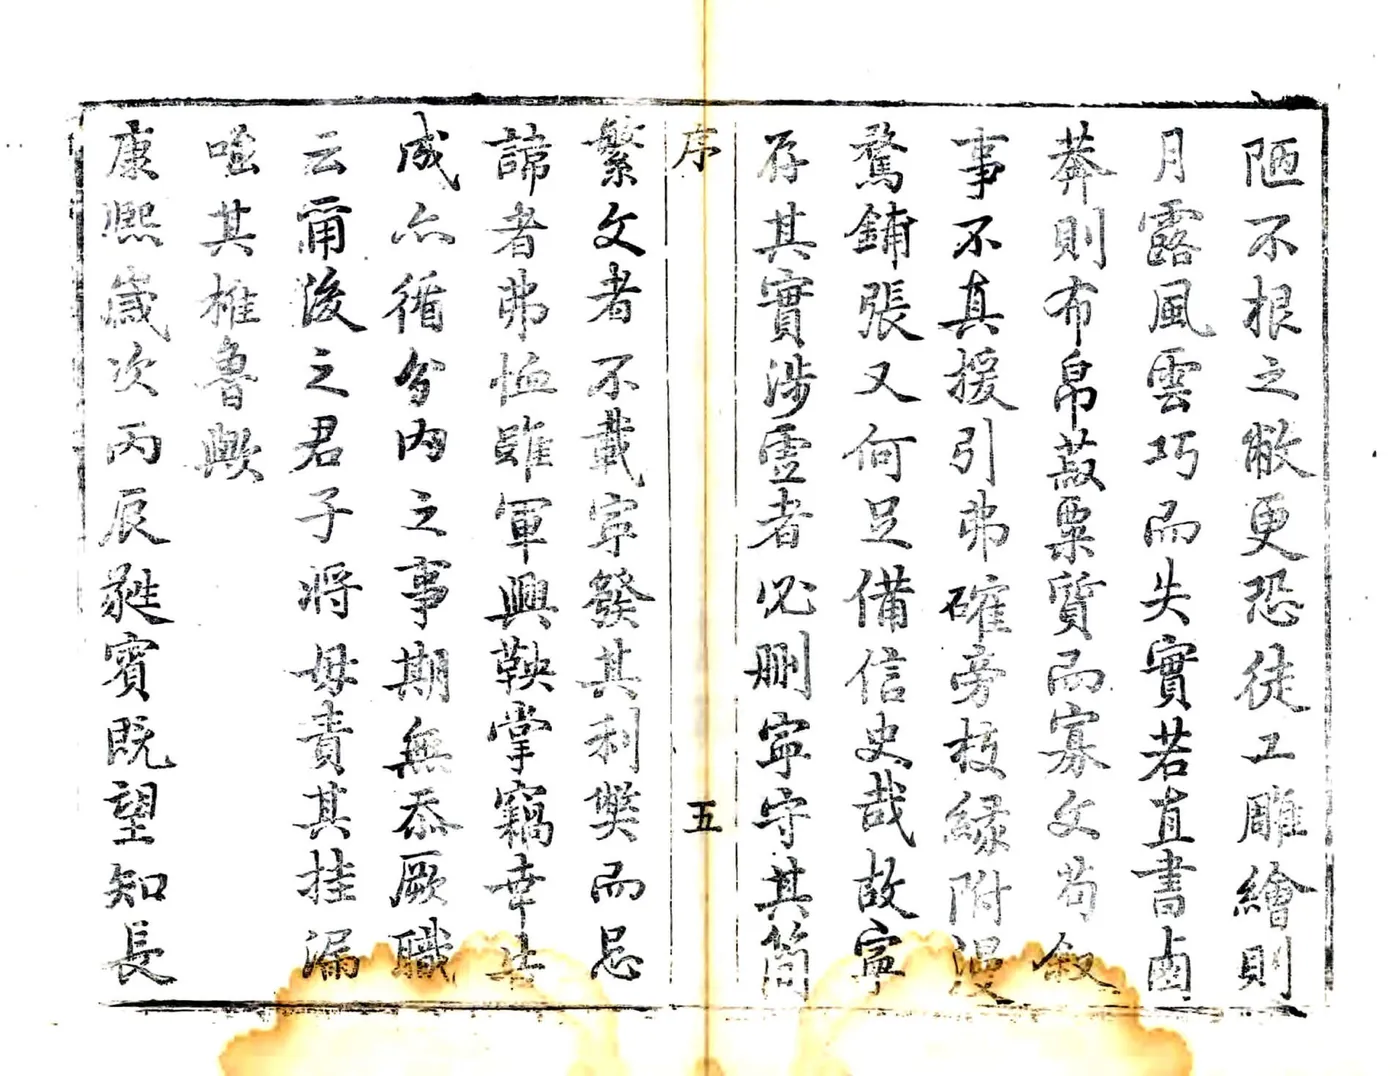 陋不根之敝更恐徒工雕繪則
月露風雲巧而失實若直書鹵
莽則布帛菽粟質而寡文苟敘
事不真援引弗確旁枝緣附漫
騖鋪張又何足備信史哉故寧
存其實涉虛者必刪寧守其簡
序
五
繁文者不載寧發其利獘而忌
諱者弗恤雖軍興鞅掌竊幸告
成亦循分內之事期無忝厥職
云爾後之君子將毋責其挂漏
嗤其椎魯歟
康熙歲次丙辰蕤賓既望知長